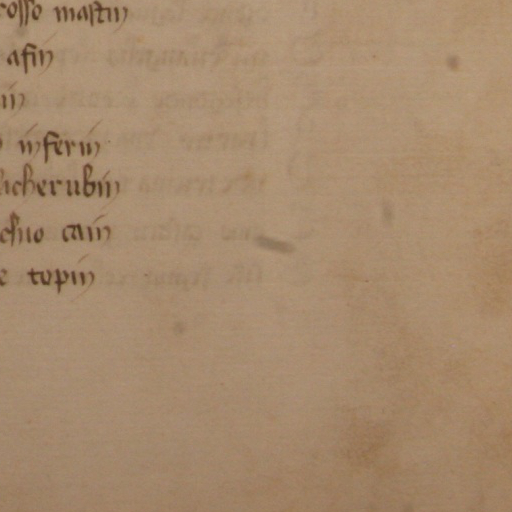 rosso mastin
afin
in
inferin
icherubin
chio cain
e topin